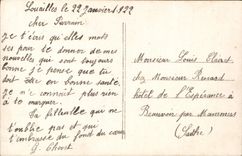 Souailles le 22 Janvier 1922
cher Parrain
je t'écris que ells mots
ses pour te donner de mes
nouvelles qui sont toujours
bonne je pense que tu
doit être en bonne santé
je ne connait plus rien
a te marquer.
ta fillantle qui ne
t'oublie pas et qui
t'embrasse du fond du cœur
G. Choust
Monsieur Louis
chez Monsieur Renard
hotel de l'Espérance à
par Mamers
(Sarthe)